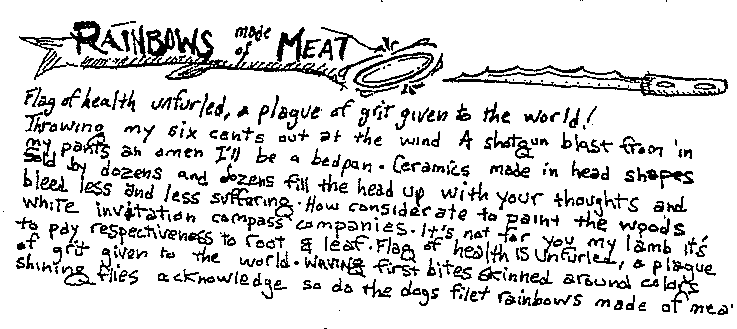 RAINBOWS made of MEAT
Flag of health unfurled, a plague of grit given to the world!
Throwing my six cents out at the wind A shotgun blast from in
my pants an omen I'll be a bedpan. Ceramics made in head shapes
sold by dozens and dozens fill the head up with your thoughts and
bleed less and less suffering. How considerate to paint the woods
white invitation compass companies. It's not for you my lamb it's
to pay respectiveness to root & leaf. Flag of health is unfurled, a plague
of grit given to the world. Waving first bites skinned around colors
shining flies acknowledge so do the dogs filet rainbows made of mea